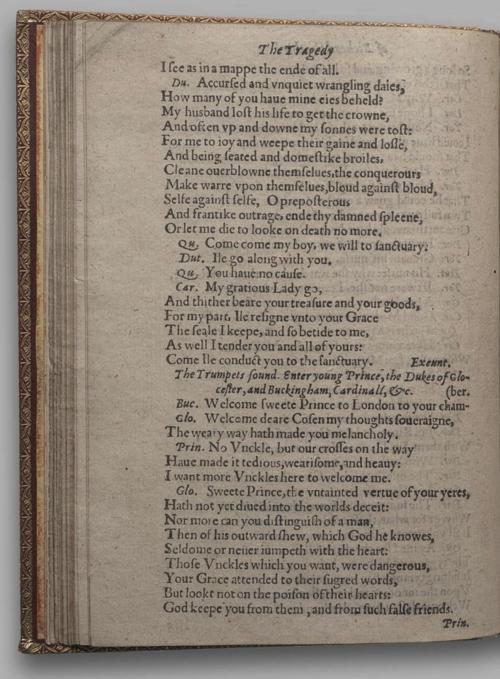 The Tragedy
I see as in a mappe the ende of all.
Du. Accursed and vnquiet wrangling daies,
How many of you haue mine eies beheld?
My husband lost his life to get the crowne,
And often vp and downe my sonnes were tost:
For me to ioy and weepe their gaine and losse,
And being seated and domestike broiles,
Cleane ouerblowne themselues, the conquerours
Make warre vpon themselues, bloud against bloud,
Selfe against selfe, O preposterous
And frantike outrage, ende thy damned spleene,
Or let me die to looke on death no more.
Qu. Come come my boy, we will to sanctuary.
Dut. Ile go along with you.
Qu. You haue no cause.
Car. My gratious Lady go,
And thither beare your treasure and your goods,
For my part, Ile resigne vnto your Grace
The seale I keepe, and so betide to me,
As well I tender you and all of yours:
Come Ile conduct you to the sanctuary. Exeunt.
The Trumpets sound. Enter young Prince, the Dukes of Glo-
cester, and Buckingham, Cardinall, &c. (ber.
Buc. Welcome sweete Prince to London to your cham-
Glo. Welcome deare Cosen my thoughts soueraigne,
The weary way hath made you melancholy.
Prin. No Vnckle, but our crosses on the way
Haue made it tedious, wearisome, and heauy:
I want more Vnckles here to welcome me.
Glo. Sweete Prince, the vntainted vertue of your yeres,
Hath not yet diued into the worlds deceit:
Nor more can you distinguish of a man,
Then of his outward shew, which God he knowes,
Seldome or neuer iumpeth with the heart:
Those Vnckles which you want, were dangerous,
Your Grace attended to their sugred words,
But lookt not on the poison of their hearts:
God keepe you from them, and from such false friends.
Prin.